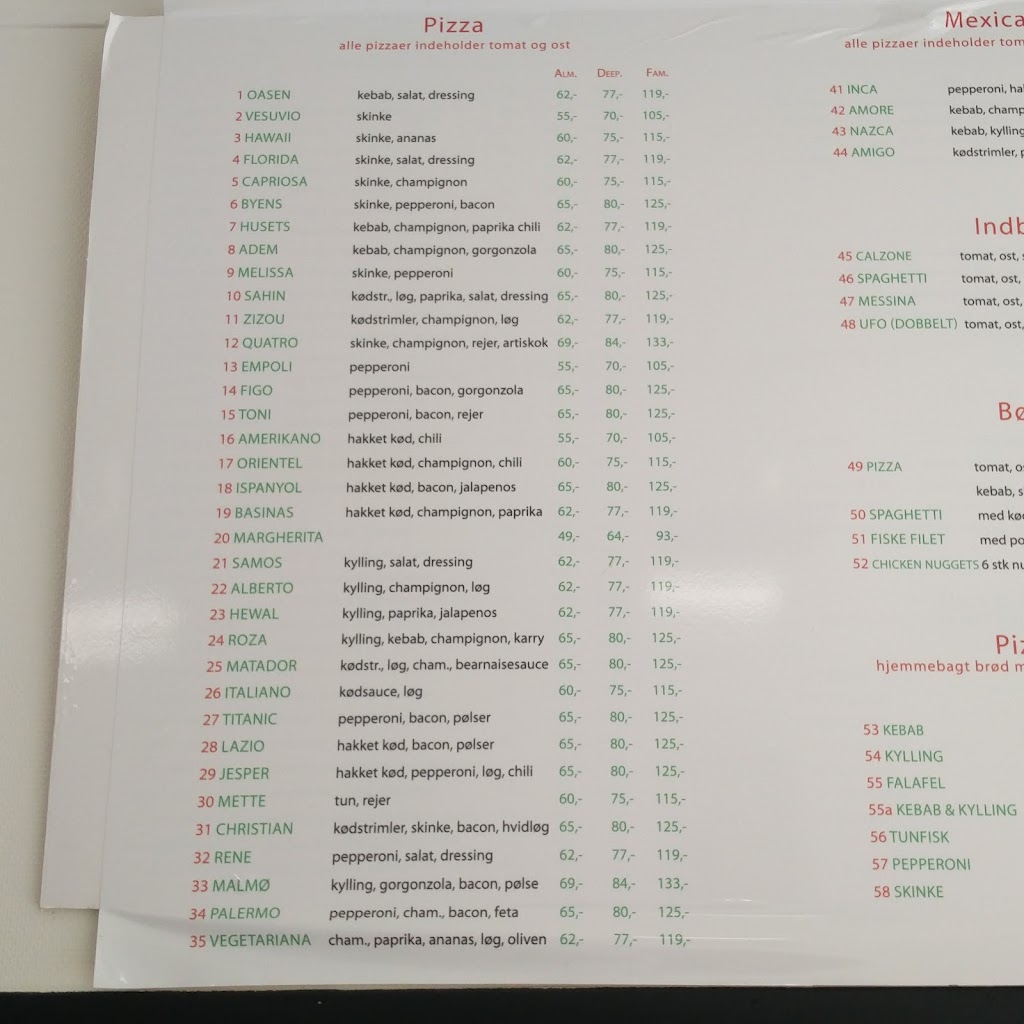 Pizza
alle pizzaer indeholder tomat og ost
ALM. DEEP. FAM.
1 OASEN kebab, salat, dressing 62,- 77,- 119,-
2 VESUVIO skinke 55,- 70,- 105,-
3 HAWAII skinke, ananas 60,- 75,- 115,-
4 FLORIDA skinke, salat, dressing 62,- 77,- 119,-
5 CAPRIOSA skinke, champignon 60,- 75,- 115,-
6 BYENS skinke, pepperoni, bacon 65,- 80,- 125,-
7 HUSETS kebab, champignon, paprika chili 62,- 77,- 119,-
8 ADEM kebab, champignon, gorgonzola 65,- 80,- 125,-
9 MELISSA skinke, pepperoni 60,- 75,- 115,-
10 SAHIN kødstr., løg, paprika, salat, dressing 65,- 80,- 125,-
11 ZIZOU kødstrimler, champignon, løg 62,- 77,- 119,-
12 QUATRO skinke, champignon, rejer, artiskok 69,- 84,- 133,-
13 EMPOLI pepperoni 55,- 70,- 105,-
14 FIGO pepperoni, bacon, gorgonzola 65,- 80,- 125,-
15 TONI pepperoni, bacon, rejer 65,- 80,- 125,-
16 AMERIKANO hakket kød, chili 55,- 70,- 105,-
17 ORIENTEL hakket kød, champignon, chili 60,- 75,- 115,-
18 ISPANYOL hakket kød, bacon, jalapenos 65,- 80,- 125,-
19 BASINAS hakket kød, champignon, paprika 62,- 77,- 119,-
20 MARGHERITA 49,- 64,- 93,-
21 SAMOS kylling, salat, dressing 62,- 77,- 119,-
22 ALBERTO kylling, champignon, løg 62,- 77,- 119,-
23 HEWAL kylling, paprika, jalapenos 62,- 77,- 119,-
24 ROZA kylling, kebab, champignon, karry 65,- 80,- 125,-
25 MATADOR kødstr., løg, cham., bearnaisesauce 65,- 80,- 125,-
26 ITALIANO kødsauce, løg 60,- 75,- 115,-
27 TITANIC pepperoni, bacon, pølser 65,- 80,- 125,-
28 LAZIO hakket kød, bacon, pølser 65,- 80,- 125,-
29 JESPER hakket kød, pepperoni, løg, chili 65,- 80,- 125,-
30 METTE tun, rejer 60,- 75,- 115,-
31 CHRISTIAN kødstrimler, skinke, bacon, hvidløg 65,- 80,- 125,-
32 RENE pepperoni, salat, dressing 62,- 77,- 119,-
33 MALMØ kylling, gorgonzola, bacon, pølse 69,- 84,- 133,-
34 PALERMO pepperoni, cham., bacon, feta 65,- 80,- 125,-
35 VEGETARIANA cham., paprika, ananas, løg, oliven 62,- 77,- 119,-
Mexica
alle pizzaer indeholder tom
41 INCA pepperoni, ha
42 AMORE kebab, champ
43 NAZCA kebab, kylling
44 AMIGO kødstrimler, p
Indb
45 CALZONE tomat, ost, s
46 SPAGHETTI tomat, ost,
47 MESSINA tomat, ost,
48 UFO (DOBBELT) tomat, ost,
Bø
49 PIZZA tomat, os
kebab, s
50 SPAGHETTI med kø
51 FISKE FILET med po
52 CHICKEN NUGGETS 6 stk nu
Piz
hjemmebagt brød m
53 KEBAB
54 KYLLING
55 FALAFEL
55a KEBAB & KYLLING
56 TUNFISK
57 PEPPERONI
58 SKINKE